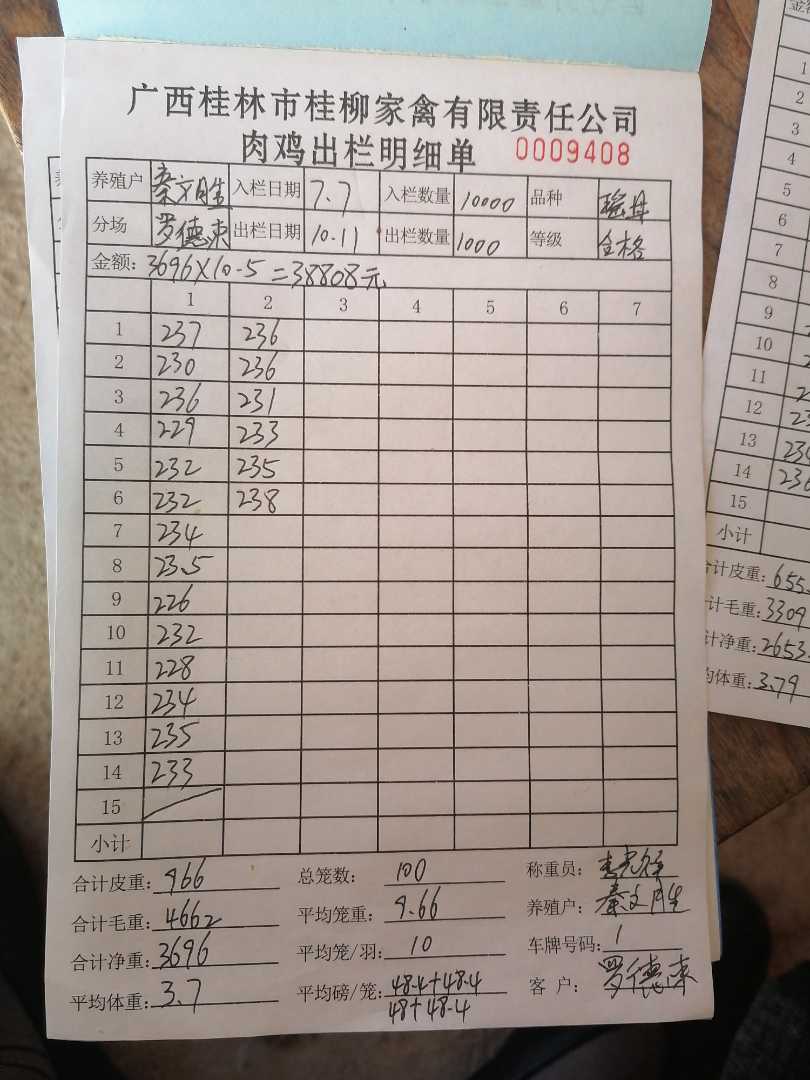 广西桂林市桂柳家禽有限责任公司
肉鸡出栏明细单 0009408
养殖户 秦文胜 入栏日期 7.7 入栏数量 10000 品种 瑶丹
分场 罗德来 出栏日期 10.11 出栏数量 1000 等级 合格
金额: 3696×10-5=38808元
1 2 3 4 5 6 7
1 237 236
2 230 236
3 236 231
4 229 233
5 232 235
6 232 238
7 234
8 23.5
9 226
10 232
11 228
12 234
13 235
14 233
15
小计
合计皮重: 966 总笼数: 100 称重员:
合计毛重: 4662 平均笼重: 9.66 养殖户: 秦文胜
合计净重: 3696 平均笼/羽: 10 车牌号码: 1
平均体重: 3.7 平均磅/笼: 48.4+48.4 客户: 罗德来
48+48.4
1
2
3
4
5
6
7
8
9
10
11
12
13
14 236
15
小计
计皮重: 655.
计毛重: 3309
计净重: 2653.
均体重: 3.79